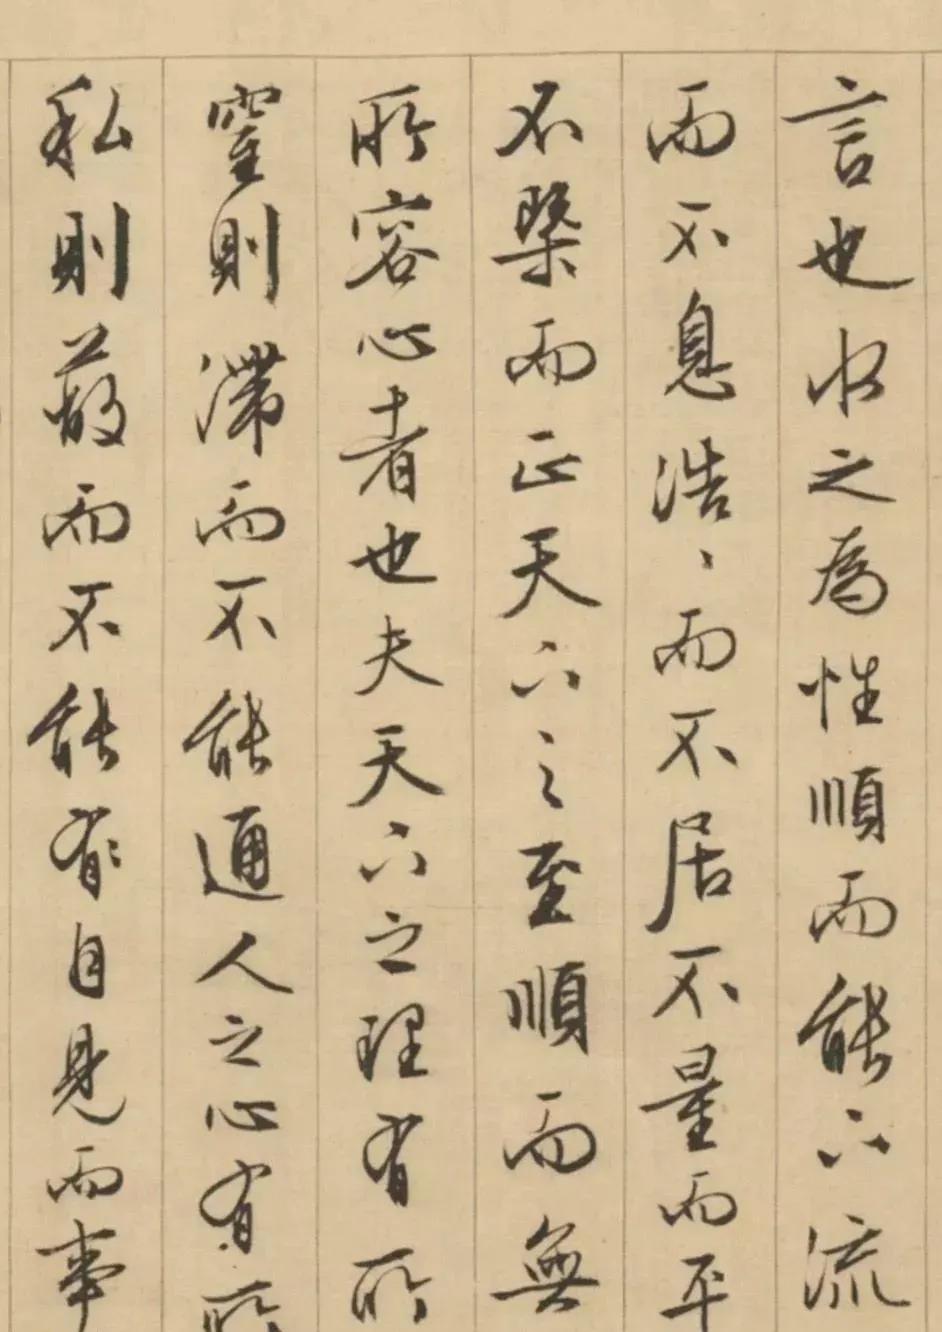 言也水之為性順而能下流
而不息浩、而不居不量而平
不槩而正天下之至順而無
所容心者也夫天下之理有所
窒則滯而不能通人之心有所
私則蔽而不能有自見而事